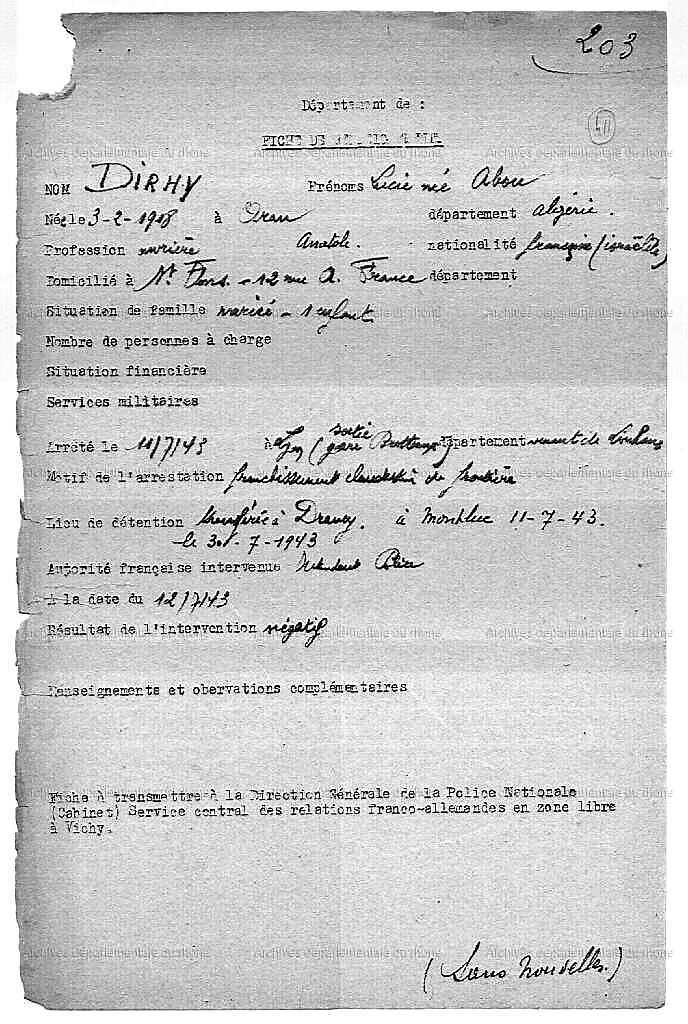 203
Département de :
FICHE DE
NOM DIRHY Prénoms Lucie née Abou
Née le 3-2-1918 à Oran département algérie.
Profession ouvrière Anatole. nationalité française (israélite)
Domicilié à St Flour. - 12 rue A. France département
Situation de famille mariée - 1 enfant
Nombre de personnes à charge
Situation financière
Services militaires
sortie
Arrêté le 11/7/43 à Lyon (gare Brotteaux) département venant de Louhans
Motif de l'arrestation franchissement clandestin de frontière
Lieu de détention transférée à Drancy. à Montluc 11-7-43.
- le 31-7-1943
Autorité française intervenue Intendant Police
A la date du 12/7/43
Résultat de l'intervention négatif
Renseignements et obervations complémentaires
Fiche à transmettre à la Direction Générale de la Police Nationale
(Cabinet) Service central des relations franco-allemandes en zone libre
à Vichy.
(Sans nouvelles.)
Archives départementale du rhone